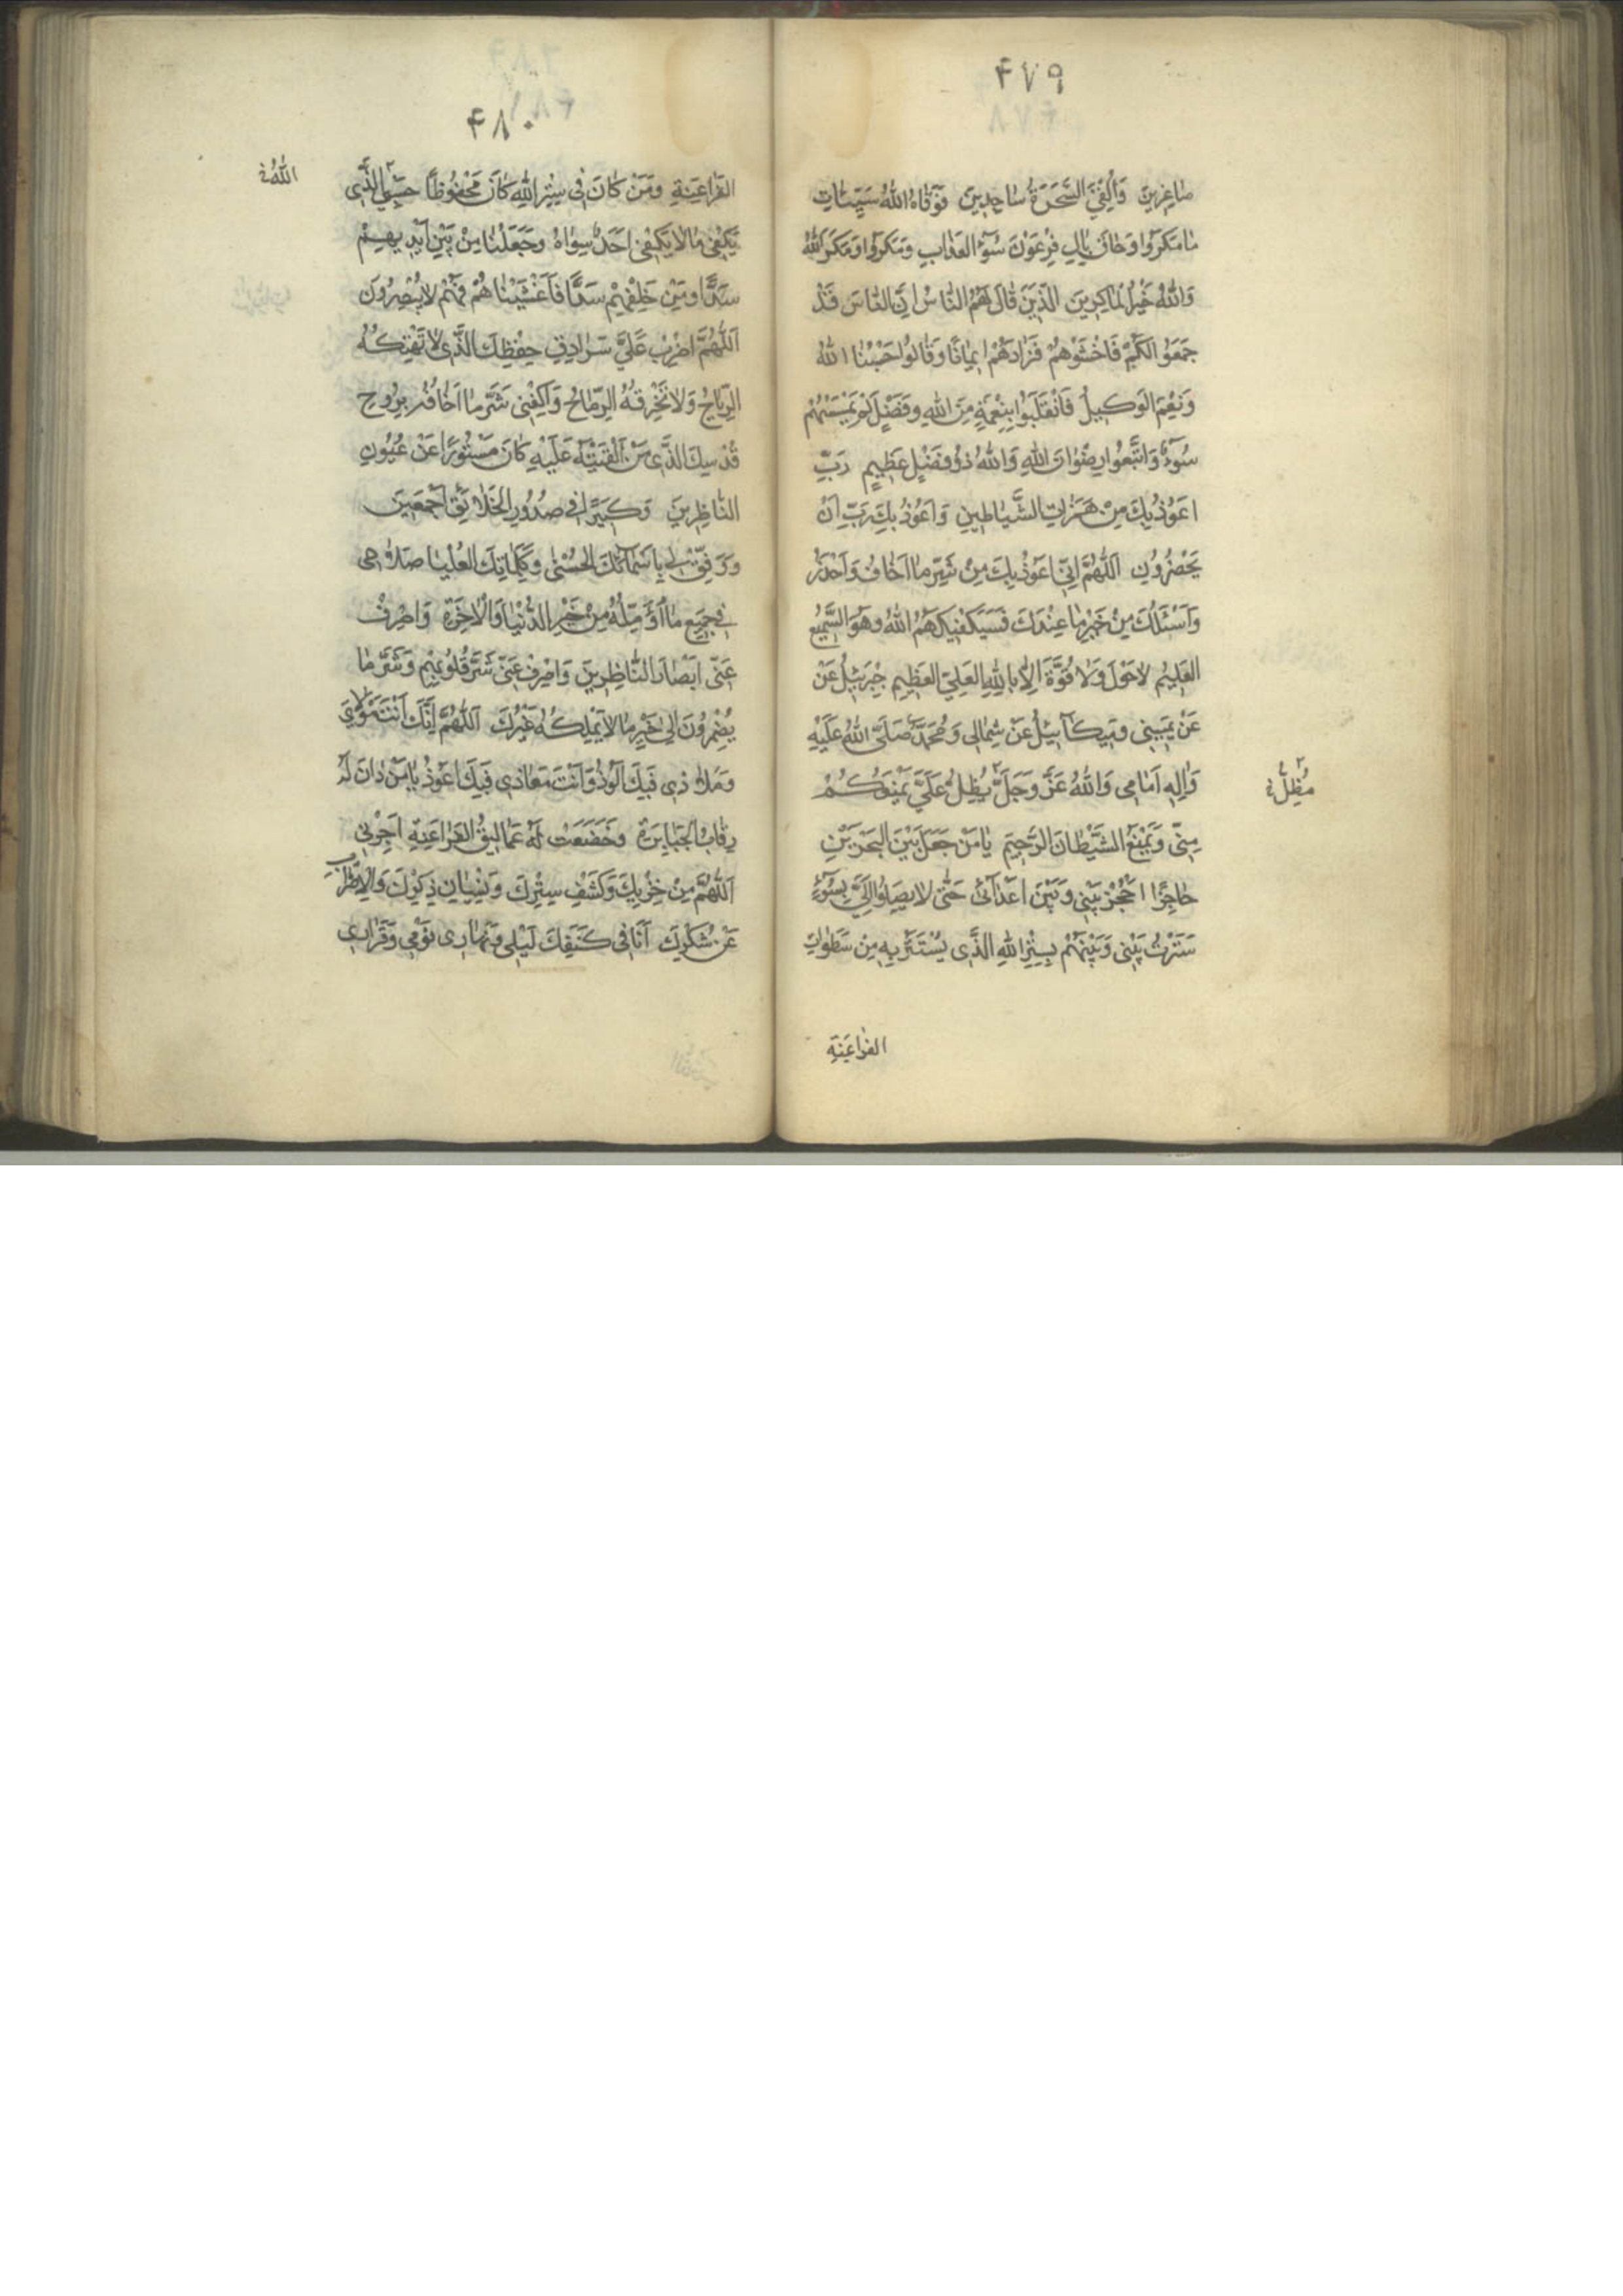 ۴۷۹
صٰاغِرِينَ وَاُلْقِىَ السَّحَرَةُ سٰاجِدِينَ فَوَقٰاهُ اللّٰهُ سَيِّئٰاتِ
مٰا مَكَرَوُا وَحٰاقَ بِاٰلِ فِرْعَوْنَ سُوۤءُ العَذٰابِ وَمَكَرَوُا وَمَكَرَ اللّٰهُ
وَاللّٰهُ خَيْرُ المٰاكِرِينَ الَّذِينَ قٰالَ لَهُمُ النّٰاسُ اِنَّ النّٰاسَ قَدْ
جَمَعَوُا لَكُمْ فَاخْشَوْهُمْ فَزٰادَهُمْ اِيمٰانًا وَقٰالُوا حَسْبُنَا اللّٰهُ
وَنِعْمَ الوَكِيلُ فَانْقَلَبَوُا بِنِعْمَةٍ مِنَ اللّٰهِ وَفَضْلٍ لَمْ يَمْسَسْهُمْ
سُوۤءٌ وَاتَّبَعُوا رِضْوٰانَ اللّٰهِ وَاللّٰهُ ذُو فَضْلٍ عَظِيمٍ رَبِّ
اَعُوذُ بِكَ مِنْ هَمَزٰاتِ الشَّيٰاطِينِ وَاَعُوذُ بِكَ رَبِّ اَنْ
يَحْضُرُونِ اَللّٰهُمَّ اِنِّى اَعُوذُ بِكَ مِنْ شَرِّ مٰا اَخٰافُ وَاَحْذَرُ
وَاَسْئَلُكَ مِنْ خَيْرِ مٰا عِنْدَكَ فَسَيَكْفِيكَهُمُ اللّٰهُ وَهُوَ السَّمِيعُ
العَلِيمُ لاٰحَوْلَ وَلاٰ قُوَّةَ اِلاّٰ بِاللّٰهِ العَلِىِّ العَظِيمِ جِبْرَئِيلُ عَنْ
عَنْ يَمِينِى وَمِيكٰاۤئِيلُ عَنْ شِمٰالِى وَمُحَمَّدٌ صَلَّى اللّٰهُ عَلَيْهِ
وَاٰلِهِ اَمٰامِى وَاللّٰهُ عَزَّ وَجَلَّ يُظِلُّ عَلَىَّ يَمْنَعُكُمْ
مُظِلٌّ
مِنِّى وَيَمْنَعُ الشَّيْطٰانَ الرَّجِيمَ يٰا مَنْ جَعَلَ بَيْنَ البَحْرَيْنِ
حٰاجِزًا احْجُزْ بَيْنِى وَبَيْنَ اَعْدٰاۤئِى حَتّٰى لاٰيَصِلُوا اِلَىَّ بِسُوۤءٍ
سَتَرْتُ بَيْنِى وَبَيْنَهُمْ بِسِتْرِ اللّٰهِ الَّذِى يُسْتَتَرُ بِهِ مِنْ سَطَوٰاتِ
الفرٰاعَنِةِ
۴۸۰
الفَرٰاعِنَةِ وَمَنْ كٰانَ فِى سِتْرِ اللّٰهِ كٰانَ مَحْفُوظًا حَسْبِىَ الَّذِى
اللّٰهُ
يَكْفِى مٰا لاٰ يَكْفِى اَحَدٌ سِوٰاهُ وَجَعَلْنٰا مِنْ بَيْنِ اَيْدِيهِمْ
سَدًّا وَمِنْ خَلْفِهِمْ سَدًّا فَاَغْشَيْنٰاهُمْ فَهُمْ لاٰيُبْصِرُونَ
اَللّٰهُمَّ اضْرِبْ عَلَىَّ سَرٰادِقِ حِفْظِكَ الَّذِى لاٰتَهْتِكُهُ
الرِّيٰاحُ وَلاٰ تَخْرِقُهُ الرِّمٰاحُ وَاَكْفِنِى شَرَّ مٰا اَخٰافُهُ بِرُوحِ
قُدْسِكَ الَّذِى مَنْ اَلْقَيْتَهُ عَلَيْهِ كٰانَ مَسْتُورًا عَنْ عُيُونِ
النّٰاظِرِينَ وَكَبِيرًا فِى صُدُورِ الخَلاٰئِقِ اَجْمَعِينَ
وَوَفِّقْ لِى بِاَسْمٰاۤئِكَ الحُسْنٰى وَكَلِمٰاتِكَ العُلْيٰا صَلاٰحِى
فِى جَمِيعِ مٰا اُؤَمِّلُهُ مِنْ خَيْرِ الدُّنْيٰا وَالْاٰخِرَةِ وَاصْرِفْ
عَنِّى اَبْصٰارَ النّٰاظِرِينَ وَاصْرِفْ عَنِّى شَرَّ قُلُوبِهِمْ وَشَرَّ مٰا
يُضْمِرُونَ اِلٰى خَيْرِ مٰا لاٰيَمْلِكُهُ غَيْرُكَ اَللّٰهُمَّ اِنَّكَ اَنْتَ مَوْلاٰىَ
وَمَلاٰذِى فَبِكَ اَلُوذُ وَاَنْتَ مَعٰاذِى فَبِكَ اَعُوذُ يٰا مَنْ دٰانَ لَهُ
رِقٰابُ الجَبٰابِرَةِ وَخَضَعَتْ لَهُ عَمٰالِيقُ الفَرٰاعِنَةِ اَجِرْنِى
اَللّٰهُمَّ مِنْ خِزْيِكَ وَكَشْفِ سِتْرِكَ وَنِسْيٰانِ ذِكْرِكَ وَالْاِضْرٰابِ
عَنْ شُكْرِكَ اَنَا فِى كَنَفِكَ لَيْلِى وَنَهٰارِى نَوْمِى وَقَرٰارِى